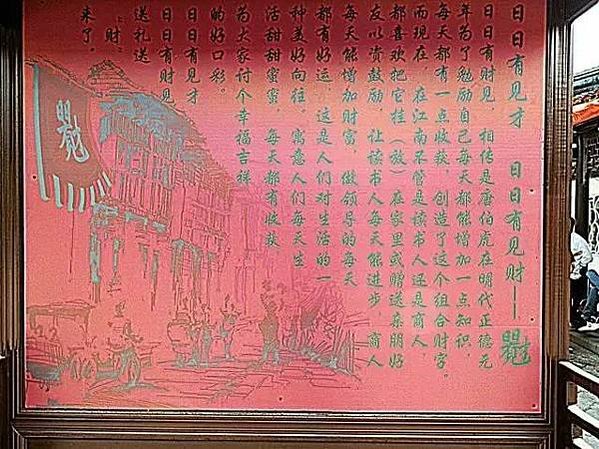 日日有见才 日日有见财——
日日有财见，相传是唐伯虎在明代正德元
年为了勉励自己每天都能增加一点知识，
每天都有一点收获，创造了这个组合财字。
而现在，在江南不管是读书人还是商人，
都喜欢把它挂（放）在家里或赠送亲朋好
友以资鼓励，让读书人每天能进步，商人
每天能增加财富，做领导的每天
都有好运，这是人们对生活的一
种美好向往。寓意人们每天生
活甜甜蜜蜜，每天都有收获
为大家讨个幸福吉祥
的好口彩。
日日有见才
日日有财见
送礼送
“财”
来了。